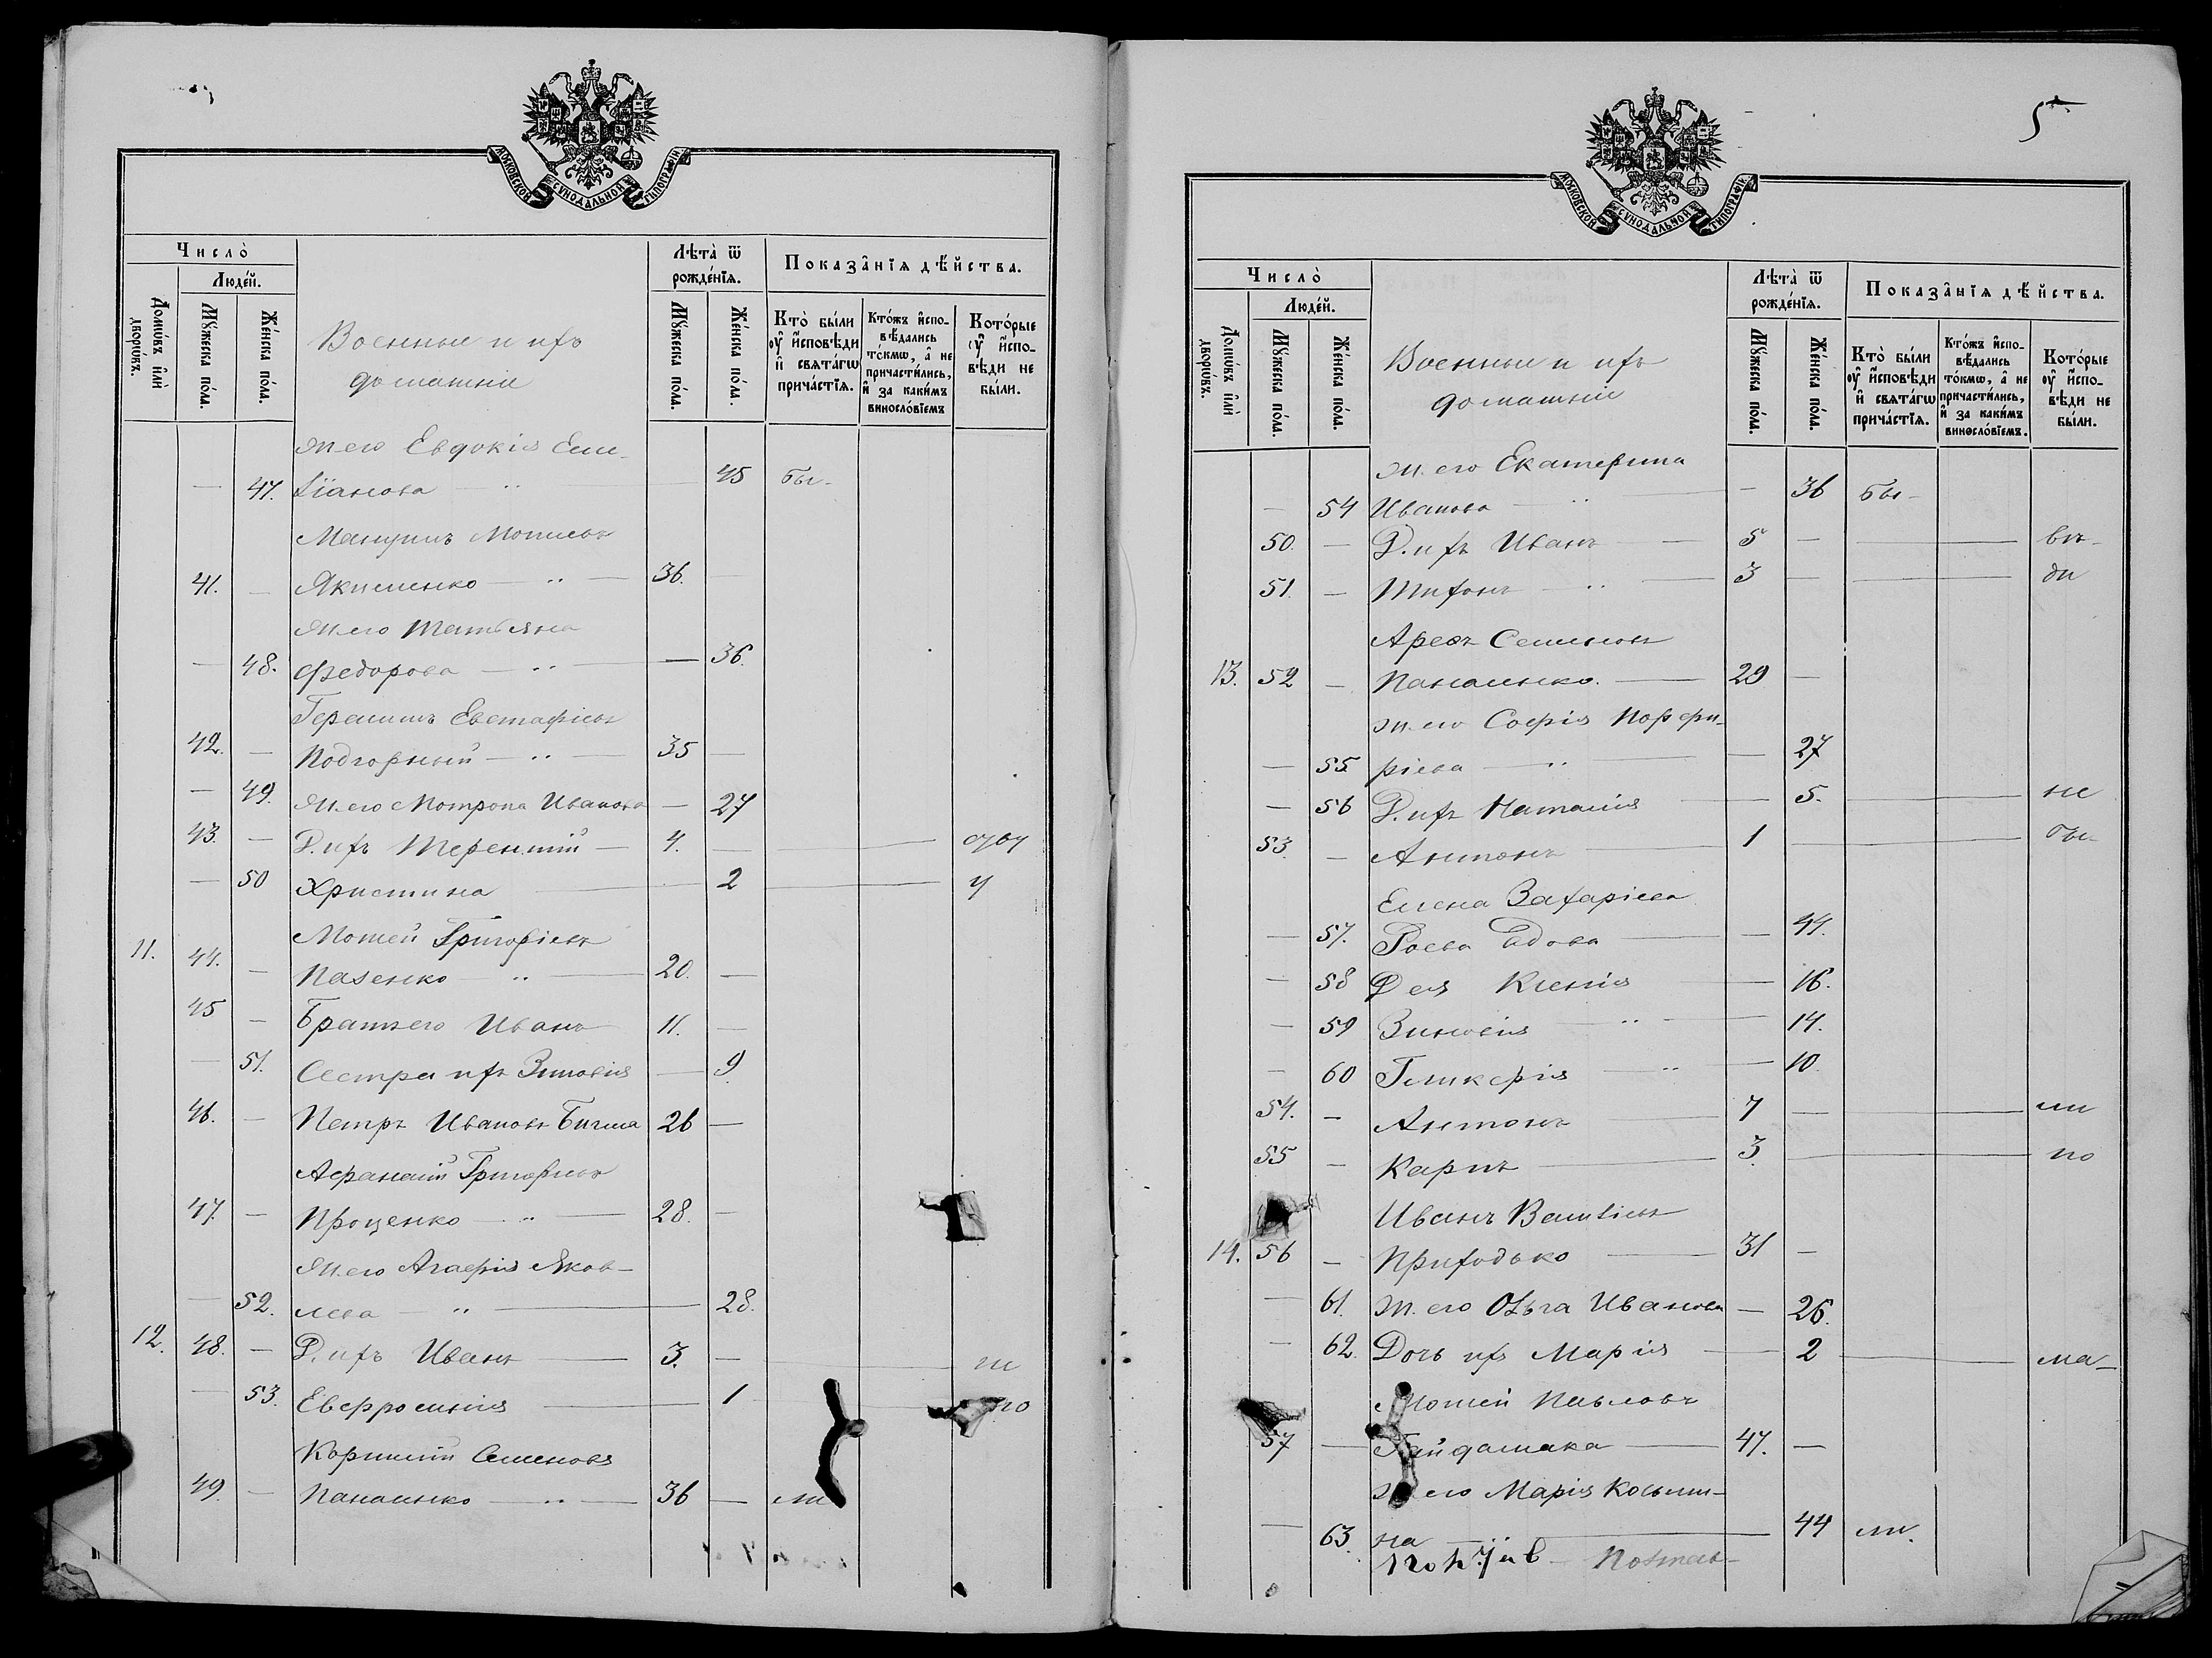 МОСКОВСКОЙ СѴНОДАЛЬНОЙ ТИПОГРАФІИ.
Число̀
Люде́й.
Домѡ́въ и҆лѝ дворѡ́въ.
Мꙋ́жеска по́ла.
Же́нска по́ла.
Военные и ихъ
домашніе
Лѣта̀ ѿ рожде́нїѧ.
Мꙋ́жеска по́ла.
Же́нска по́ла.
Показа̂нїѧ дѣ́йства.
Кто̀ бы́ли ᲂу҆ и҆́сповѣди и҆ свѧта́гѡ прича́стїѧ.
Кто́жъ и҆спо-
вѣ́дались
то́кмѡ, а҆ не
причасти́лись,
и҆ за каки́мъ
виносло́вїемъ
Кото́рые ᲂу҆ и҆спо-
вѣди не
бы́ли.
ж его Евдокія Еми-
— 47. ліанова — 45 бы-
Мануилъ Моисеевъ
41. — Якименко — 36. —
ж его Татьяна
— 48. Федорова — 36.
Герасимъ Евстафіевъ
42. — Подгорный — 35 —
— 49. Ж. его Мотрона Иванова — 27
43. — Д. ихъ Терентій — 4. —
— 50 Христина — 2 у
Мотей Григоріевъ
11. 44. — Пазенко — 20. —
45 — Братъ его Иванъ 11. —
— 51. Сестра ихъ Зиновія — 9
46. — Петръ Ивановъ Бигма 26 —
Афанасій Григоріевъ
47. — Проценко — 28. —
Ж. его Агафія Яков-
— 52. лева — 28.
12. 48. — Д. ихъ Иванъ — 3. —
— 53. Евфросинія — 1 по
Корнилій Семеновъ
49. — Панасенко — 36 — ли
5
МОСКОВСКОЙ СѴНОДАЛЬНОЙ ТИПОГРАФІИ.
Число̀
Люде́й.
Домѡ́въ и҆лѝ дворѡ́въ.
Мꙋ́жеска по́ла.
Же́нска по́ла.
Военные и ихъ
домашніе
Лѣта̀ ѿ рожде́нїѧ.
Мꙋ́жеска по́ла.
Же́нска по́ла.
Показа̂нїѧ дѣ́йства.
Кто̀ бы́ли ᲂу҆ и҆́сповѣди и҆ свѧта́гѡ прича́стїѧ.
Кто́жъ и҆спо-
вѣ́дались
то́кмѡ, а҆ не
причасти́лись,
и҆ за каки́мъ
виносло́вїемъ.
Кото́рые ᲂу҆ и҆спо-
вѣди не
бы́ли.
ж. его Екатерина
— 54 Иванова — 36 бы-
50. — Д. ихъ Иванъ — 5 —
51. — Тихонъ — 3 —
Арефъ Семеновъ
13. 52 — Панасенко. — 29 —
ж его Софія Порфи-
— 55 ріева — 27
— 56 Д. ихъ Наталія — 5. не
53. — Антонъ — 1 бы-
Елена Захаріева
— 57. Роева вдова — 44.
— 58 Дея Ксенія — 16.
— 59 Зиновія — 14.
— 60 Гликерія — 10
54. — Антонъ — 7 — ли
55 — Карпъ — 3. по
Иванъ Васильевъ
14. 56 — Приходько — 31 —
— 61. ж. его Ольга Иванова — 26.
— 62. Дочь ихъ Марія — 2 ма-
Мотей Павловъ
57 — Гайдамака — 47. —
ж его Марія Косьми-
— 63. на — 44 ли.